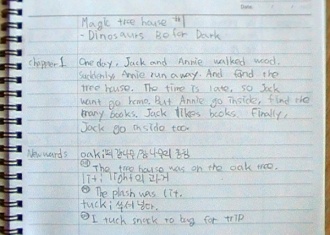 Magic tree house #1
- Dinosaurs Before Dark
chapter 1
One day, Jack and Annie walked wood.
Suddenly Annie run away. And find the
tree house. The time is late, so Jack
want go home. But Annie go inside, find the
many books. Jack likes books. Finally,
Jack go inside too.
New words
oak;
The tree house was on the oak tree.
lit; light의 과거
The plash was lit.
tuck;
I tuck snack to bag for trip